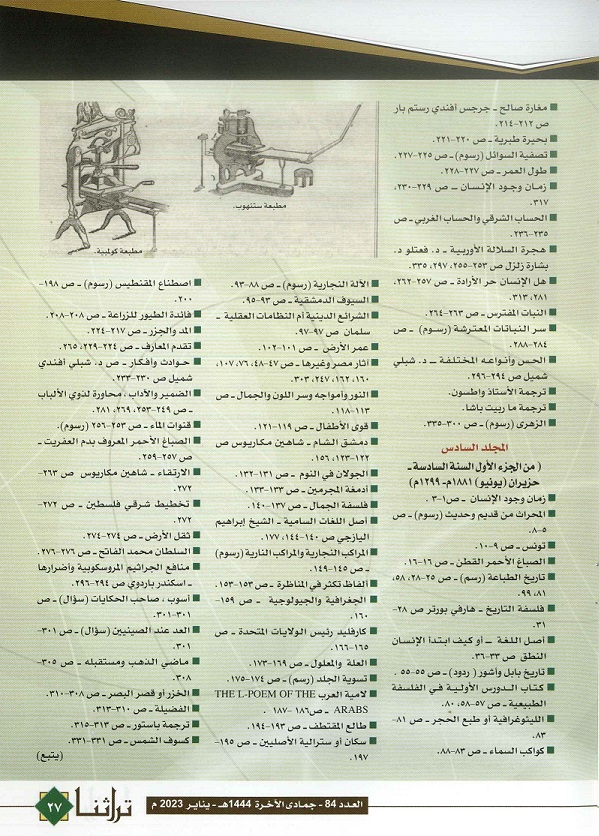 مغارة صالح ـ جرجس أفندي رستم باز
ص ٢١٢-٢١٤.
بحيرة طبرية ـ ص ٢٢٠-٢٢١.
تصفية السوائل (رسوم) ـ ص ٢٢٥-٢٢٧.
طول العمر ـ ص ٢٢٧-٢٢٨.
زمان وجود الإنسان ــ ص ٢٢٩-٢٣٠،
٣١٧.
الحساب الشرقي والحساب الغربي ـ ص
٢٣٥-٢٣٦.
هجرة السلالة الأوربية ـ د. فعتلو د.
بشارة زلزل ص ٢٥٣-٢٥٥، ٢٩٧، ٣٣٥.
هل الإنسان حر الأرادة ـ ص ٢٥٧-٢٦٢،
٢٨١، ٣١٣.
النبات المفترس ـ ص ٢٦٣-٢٦٤.
سر النباتات المعترشة (رسوم) ـ ص
٢٨٤-٢٨٨.
الحس وأنواعه المختلفة ـ د. شبلي
شميل ص ٢٩٤-٢٩٦.
ترجمة الأستاذ واطسون.
ترجمة ما رييت باشا.
الزهرى (رسوم) ـ ص ٣٠٠-٣٣٥.
المجلد السادس
( من الجزء الأول السنة السادسة ـ
حزيران (يونيو) ١٨٨١م- ١٢٩٩هـ)
زمان وجود الإنسان ـ ص١-٣ .
المحراث من قديم وحديث (رسوم) ـ ص
٥-٨.
تونس ـ ص ٩-١٠.
الصباغ الأحمر القطن ـ ص ١٦-١٦.
تاريخ الطباعة (رسم) ـ ص ٢٥-٢٨، ٥٨،
٨١، ٩٩.
فلسفة التاريخ ـ هارفي بورتر ص ٢٨-
٣١.
أصل اللغة ـ أو كيف ابتدأ الإنسان
النطق ص ٣٣-٣٦.
تاريخ بابل وأشور ( ردود) ـ ص ٥٥-٥٥ .
كتاب الدورس الأولية في الفلسفة
الطبيعية ـ ص ٥٧-٥٨، ٨٠.
الليثوغرافية أو طبع الحجر ـ ص ٨١-
٨٣.
كواكب السماء ـ ص ٨٣-٨٨.
مطبعة ستنهوب.
مطبعة كولمبية.
الألة النجارية (رسوم) ـ ص ٨٨-٩٣.
السيوف الدمشقية ـ ص ٩٣-٩٥.
الشرائع الدينية أم النظامات العقلية ـ
سلمان ص ٩٧-٩٧.
عمر الأرض ـ ص ١٠١-١٠٢.
أثار مصر وغيرها ـ ص ٤٧-٤٨، ٧٦، ١٠٧،
١٦٠، ١٦٢، ٢٤٧، ٣٠٣.
النور وأمواجه وسر اللون والجمال ـ ص
١١٣-١١٨.
قوى الأطفال ـ ص ١١٩-١٢١.
دمشق الشام ـ شاهين مكاريوس ص
١٢٢-١٢٣، ١٥٦.
الجولان في النوم ـ ص ١٣١-١٣٢.
أدمغة المجرمين ـ ص ١٣٣-١٣٣.
فلسفة الجمال ـ ص ١٣٧-١٤٠.
أصل اللغات السامية ـ الشيخ إبراهيم
اليازجي ص ١٤٠-١٤٤، ١٧٧.
المراكب النجارية والمراكب النارية (رسوم)
ـ ص ١٤٥-١٤٩.
ألفاظ تكثر في المناظرة ـ ص ١٥٣-١٥٣.
الجغرافية والجيولوجية ـ ص ١٥٩-
١٦٠.
كارفليد رئيس الولايات المتحدة ـ ص
١٦٥-١٦٦.
العلة والمعلول ـ ص ١٦٩-١٧٣.
تسوية الجلد (رسم) ـ ص ١٧٤-١٧٥.
لامية العرب THE L-POEM OF THE
ARABS ـ ص١٨٦- ١٨٧ .
طالع المقتطف ـ ص ١٩٣-١٩٤.
سكان أو سترالية الأصليين ـ ص ١٩٥-
١٩٧.
اصطناع المقنطيس (رسوم) ـ ص ١٩٨-
٢٠٠.
فائدة الطيور للزراعة ـ ص ٢٠٨-٢٠٨.
المد والجزر ـ ص ٢١٧-٢٢٤.
تقدم المعارف ـ ص ٢٢٤-٢٢٩، ٢٦٥.
حوادث وأفكار ـ ص د. شبلي أفندي
شميل ص ٢٣٠-٢٣٣.
الضمير والآداب ، محاورة لذوي الألباب
ـ ص ٢٤٩-٢٥٣، ٢٦٩، ٢٨١.
قنوات الماء ـ ص ٢٥٣-٢٥٦ (رسوم).
الصباغ الأحمر المعروف بدم العفريت ـ
ص ٢٥٧-٢٥٩.
الارتقاء ـ شاهين مكاريوس ص ٢٦٣-
٢٧٢.
تخطيط شرقي فلسطين ـ ص ٢٧٢-
٢٧٢.
ثقل الأرض ـ ص ٢٧٤-٢٧٤.
السلطان محمد الفاتح ـ ص ٢٧٦-٢٧٦.
منافع الجراثيم المروسكوبية وأضرارها
ـ اسكندر باردوي ص ٢٩٤-٢٩٦.
أسوب ، صاحب الحكايات (سؤال) ـ ص
٣٠١-٣٠١.
العد عند الصينيين (سؤال) ـ ص ٣٠١-
٣٠١.
ماضي الذهب ومستقبله ـ ص ٣٠٥-
٣٠٨.
الخزر أو قصر البصر ـ ص ٣٠٨-٣١٠.
الفضيلة ـ ص ٣١٠-٣١٣.
ترجمة باستور ـ ص ٣١٣-٣١٥.
كسوف الشمس ـ ص ٣٣١-٣٣١.
(يتبع)
العدد 84 - جمادى الآخرة 1444هـ - يناير 2023 م
تراثنا
٢٧